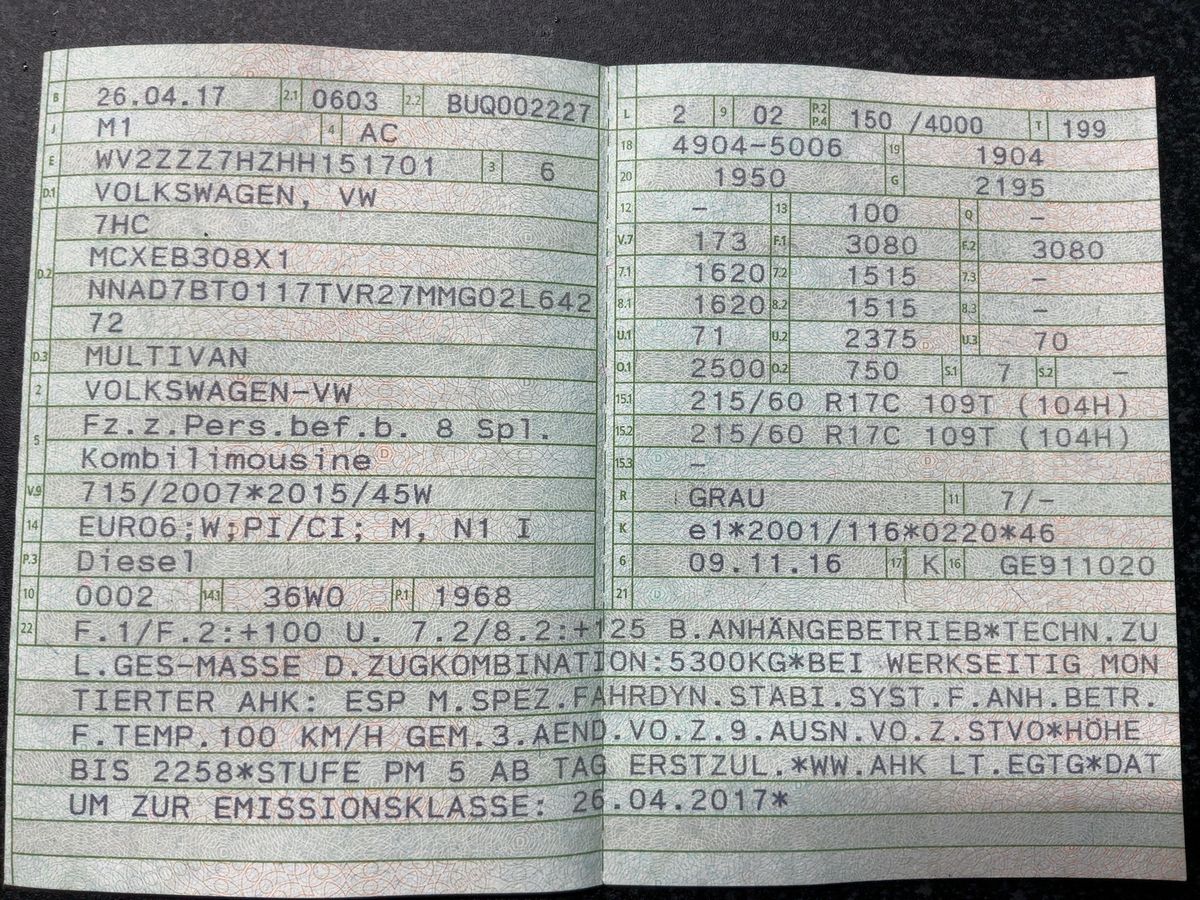 B 26.04.17 2.1 0603 2.2 BUQ002227
J M1 4 AC
E WV2ZZZ7HZHH151701 3 6
D.1 VOLKSWAGEN, VW
7HC
D.2 MCXEB308X1
NNAD7BT0117TVR27MMG02L642
72
D.3 MULTIVAN
2 VOLKSWAGEN-VW
5 Fz.z.Pers.bef.b. 8 Spl.
Kombilimousine
V.9 715/2007*2015/45W
14 EURO6;W;PI/CI; M, N1 I
P.3 Diesel
10 0002 14.1 36W0 P.1 1968
L 2 9 02 P.2 P.4 150 /4000 T 199
18 4904-5006 19 1904
20 1950 G 2195
12 – 13 100 Q –
V.7 173 F.1 3080 F.2 3080
7.1 1620 7.2 1515 7.3 –
8.1 1620 8.2 1515 8.3 –
U.1 71 U.2 2375 U.3 70
O.1 2500 O.2 750 S.1 7 S.2 –
15.1 215/60 R17C 109T (104H)
15.2 215/60 R17C 109T (104H)
15.3 –
R GRAU 11 7/-
K e1*2001/116*0220*46
6 09.11.16 17 K 16 GE911020
21
22 F.1/F.2:+100 U. 7.2/8.2:+125 B.ANHÄNGEBETRIEB*TECHN.ZU
L.GES-MASSE D.ZUGKOMBINATION:5300KG*BEI WERKSEITIG MON
TIERTER AHK: ESP M.SPEZ.FAHRDYN.STABI.SYST.F.ANH.BETR.
F.TEMP.100 KM/H GEM.3.AEND.VO.Z.9.AUSN.VO.Z.STVO*HÖHE
BIS 2258*STUFE PM 5 AB TAG ERSTZUL.*WW.AHK LT.EGTG*DAT
UM ZUR EMISSIONSKLASSE: 26.04.2017*